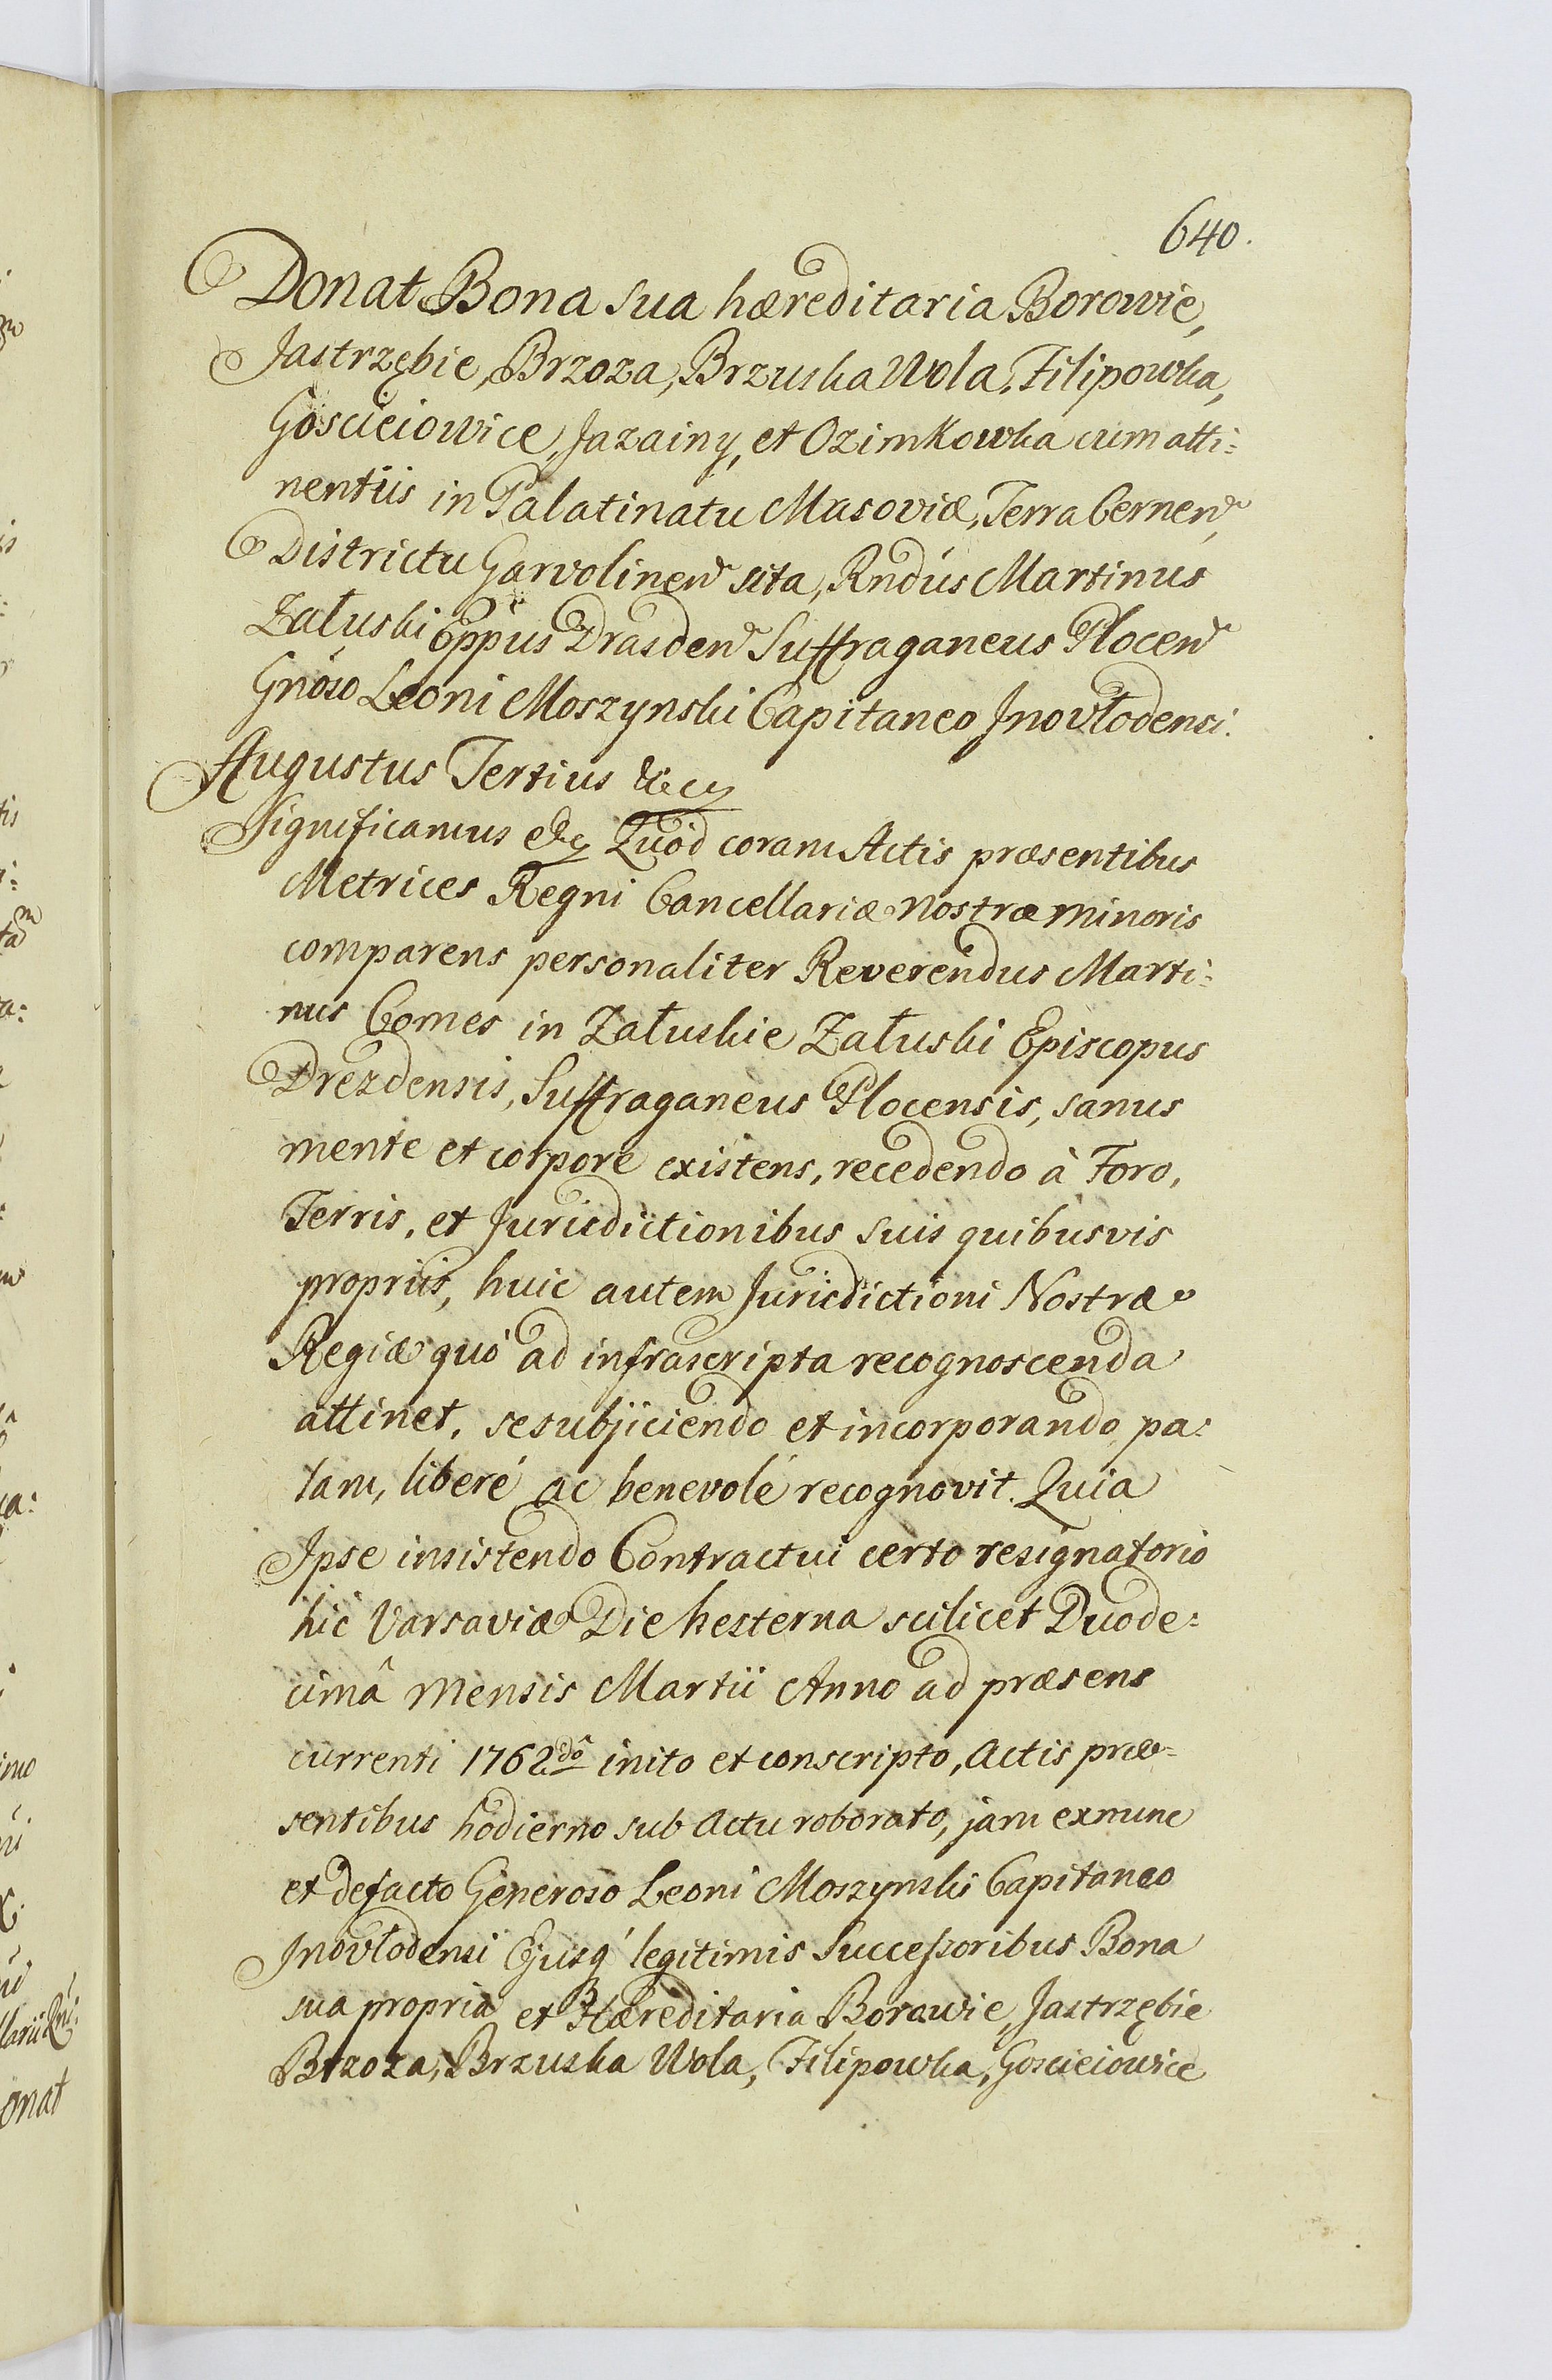 640.
Donat Bona sua hæreditaria Borowie,
Jastrzębie, Brzoza, Brzuska Wola, Filipowka,
Goscieiowice, Jazainy, et Ozimkowka cum atti:
nentiis in Palatinatu Masoviæ, Terra Cernen,
Districtu Garvolinen sita, Rndus Martinus
Załuski Eppus Drasden Suffraganeus Plocen
Gnoso Leoni Moszynski Capitaneo Inovłodensi.
Augustus Tertius &c
Significamus &c Quod coram Actis præsentibus
Metrices Regni Cancellariæ Nostræ minoris
comparens personaliter Reverendus Marti:
nus Comes in Załuskie Załuski Episcopus
Drezdensis, Suffraganeus Plocensis, sanus
mente et corpore existens, recedendo à Foro,
Terris, et Jurisdictionibus suis quibusvis
propriis, huic autem Jurisdictioni Nostræ
Regiæ quò ad infrascripta recognoscenda
attinet, se subjiciendo et incorporando pa:
lam, liberé ac benevolé recognovit. Quia
Ipse insistendo Contractui certo resignatorio
hic Varsaviæ Die hesterna scilicet Duode:
cimâ Mensis Martii Anno ad præsens
currenti 1762dô inito et conscripto, Actis præ:
sentibus hodierno sub Actu roborato, jam exnunc
et defacto Generoso Leoni Moszynski Capitaneo
Inovłodensi Ejusq' legitimis Successoribus Bona
sua propria et Hæreditaria Borowie, Jastrzębie
Brzoza, Brzuska Wola, Filipowka, Goscieiowice